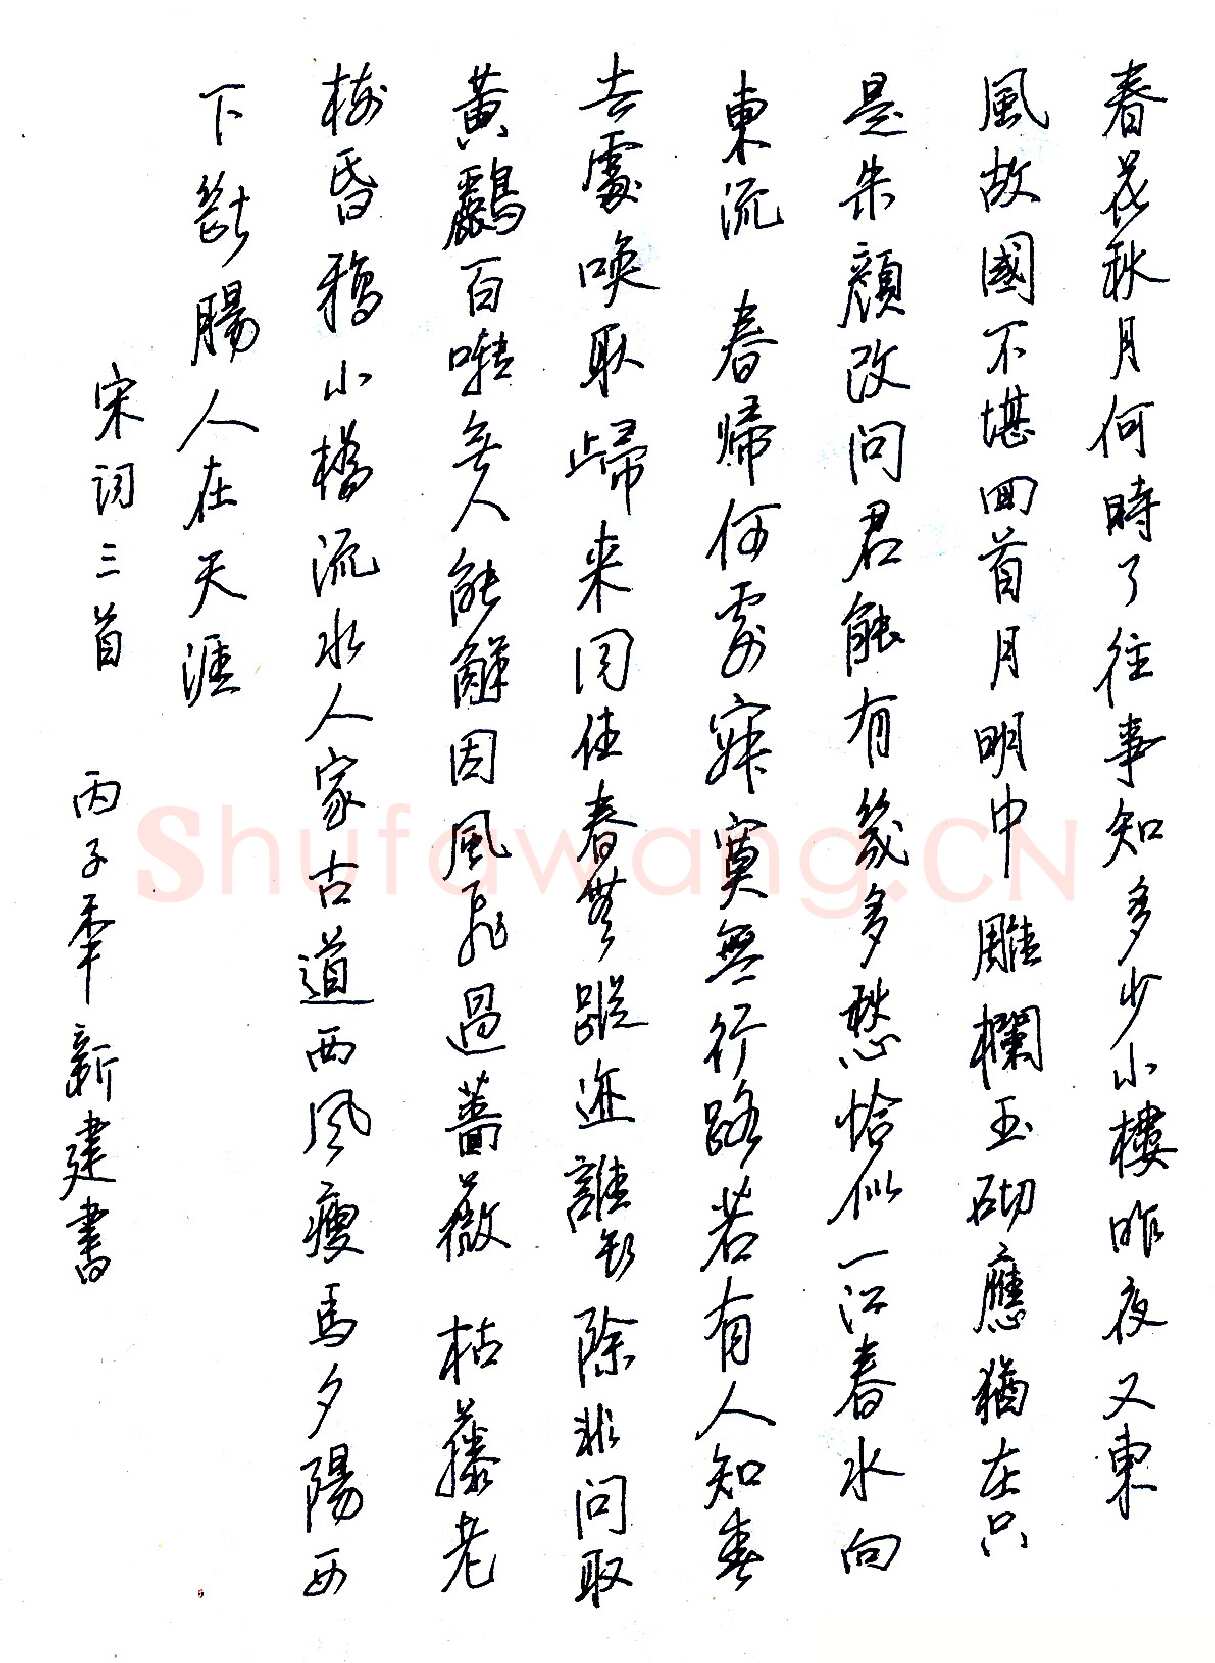 春花秋月何時了往事知多少小樓昨夜又東
風故國不堪回首月明中雕欄玉砌應猶在只
是朱顔改問君能有幾多愁恰似一江春水向
東流 春歸何處寂寞無行路若有人知春
去處喚取歸来同住春無蹤迹誰知除非問取
黃鸝百囀無人能解因風飛過薔薇 枯藤老
樹昏鴉小橋流水人家古道西风瘦馬夕陽西
下斷腸人在天涯
宋词三首 丙子年新建書
Shufawang.CN